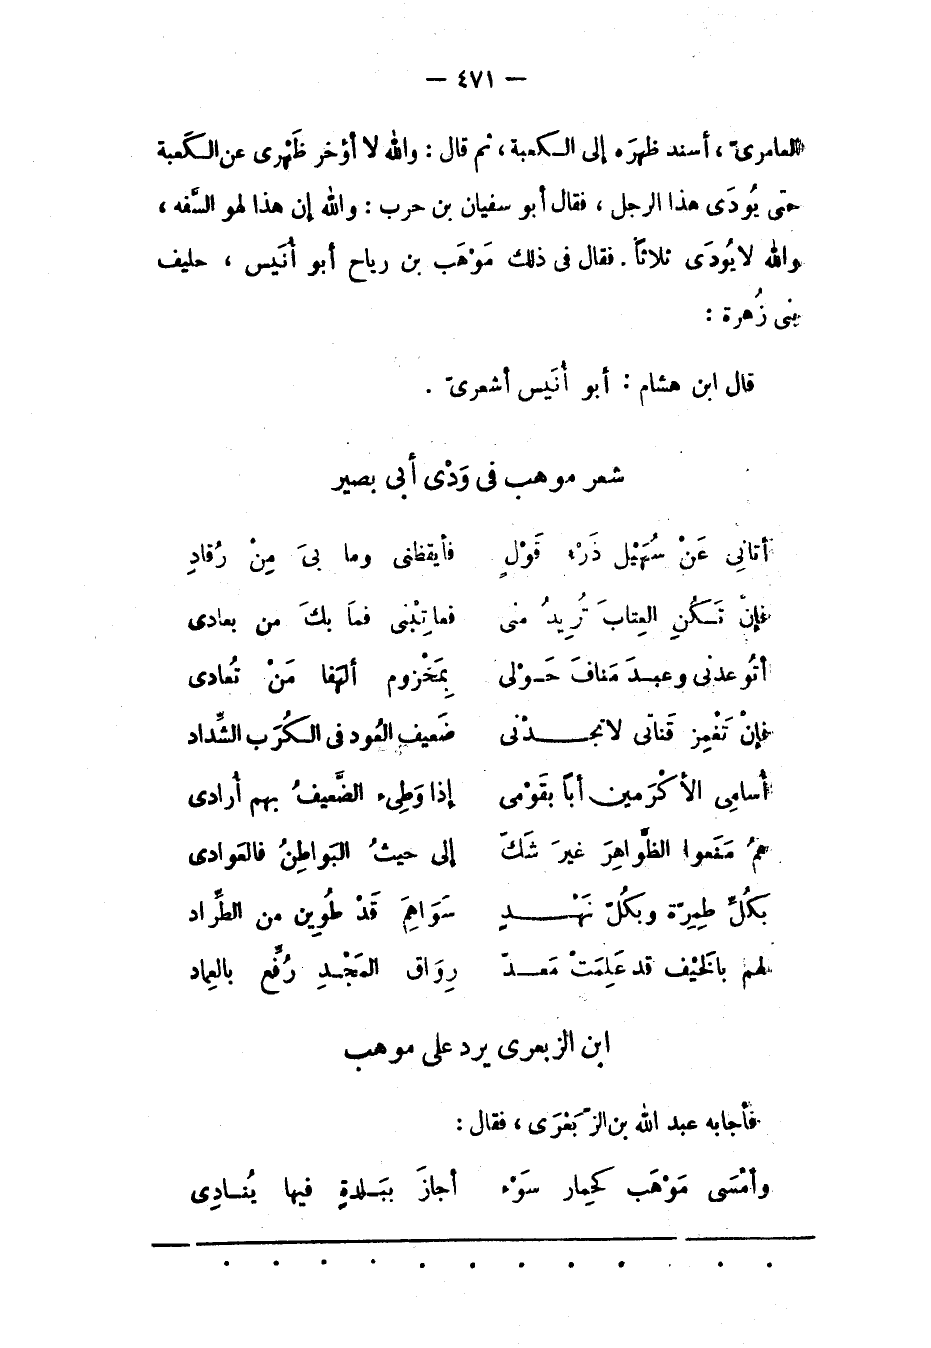 — ٤٧١ —
العامرىّ ، أسند ظهرَه إلى الكعبة ، ثم قال : والله لا أؤخر ظَهْرى عن الكعبة
حتى يُودَى هذا الرجل ، فقال أبو سفيان بن حرب : والله إن هذا لهو السَّفه ،
والله لا يُودَى ثلاثاً . فقال فى ذلك مَوْهَب بن رباح أبو أُنَيس ، حليف
بنى زُهرة :
قال ابن هشام : أبو أُنَيس أشعرىّ .
شعر موهب فى وَدْى أبى بصير
أتانِى عَنْ سُهَيْل ذَرْء قَوْلٍ فأيقظنى وما بىَ مِنْ رُقادِ
فإنْ تَكُنِ العِتابَ تُرِيدُ منى فعاتِبْنى فمَا بكَ من بعادى
أتُوعدنى وعبدَ مَنافَ حَولى بِمَخْزوم ألهَفا مَنْ تُعادى
فإنْ تَغْمِز قَناتى لا تجدْنى ضَعيف العُود فى الكُرَب الشِّداد
أُسامِى الأكْرَمين أباً بقَوْمى إذا وَطِىء الضَّعيفُ بهم أُرادى
همُ مَنَعوا الظَّواهِرَ غيرَ شَكّ إلى حيثُ البَواطِنُ فالعَوادى
بكُلِّ طِمِرّة وبكُلّ نَهْدٍ سَوَاهِمَ قَدْ طُوِين من الطِّراد
لهم بالخَيْف قد عَلِمَتْ مَعدّ رِوَاق المَجْدِ رُفِّع بالعِماد
ابن الزبعرى يرد على موهب
فأجابه عبد الله بن الزِّبَعْرَى ، فقال :
وأمْسَى مَوْهَب كَحِمار سَوْء أجازَ بِبَلدةٍ فيها يُنادِى